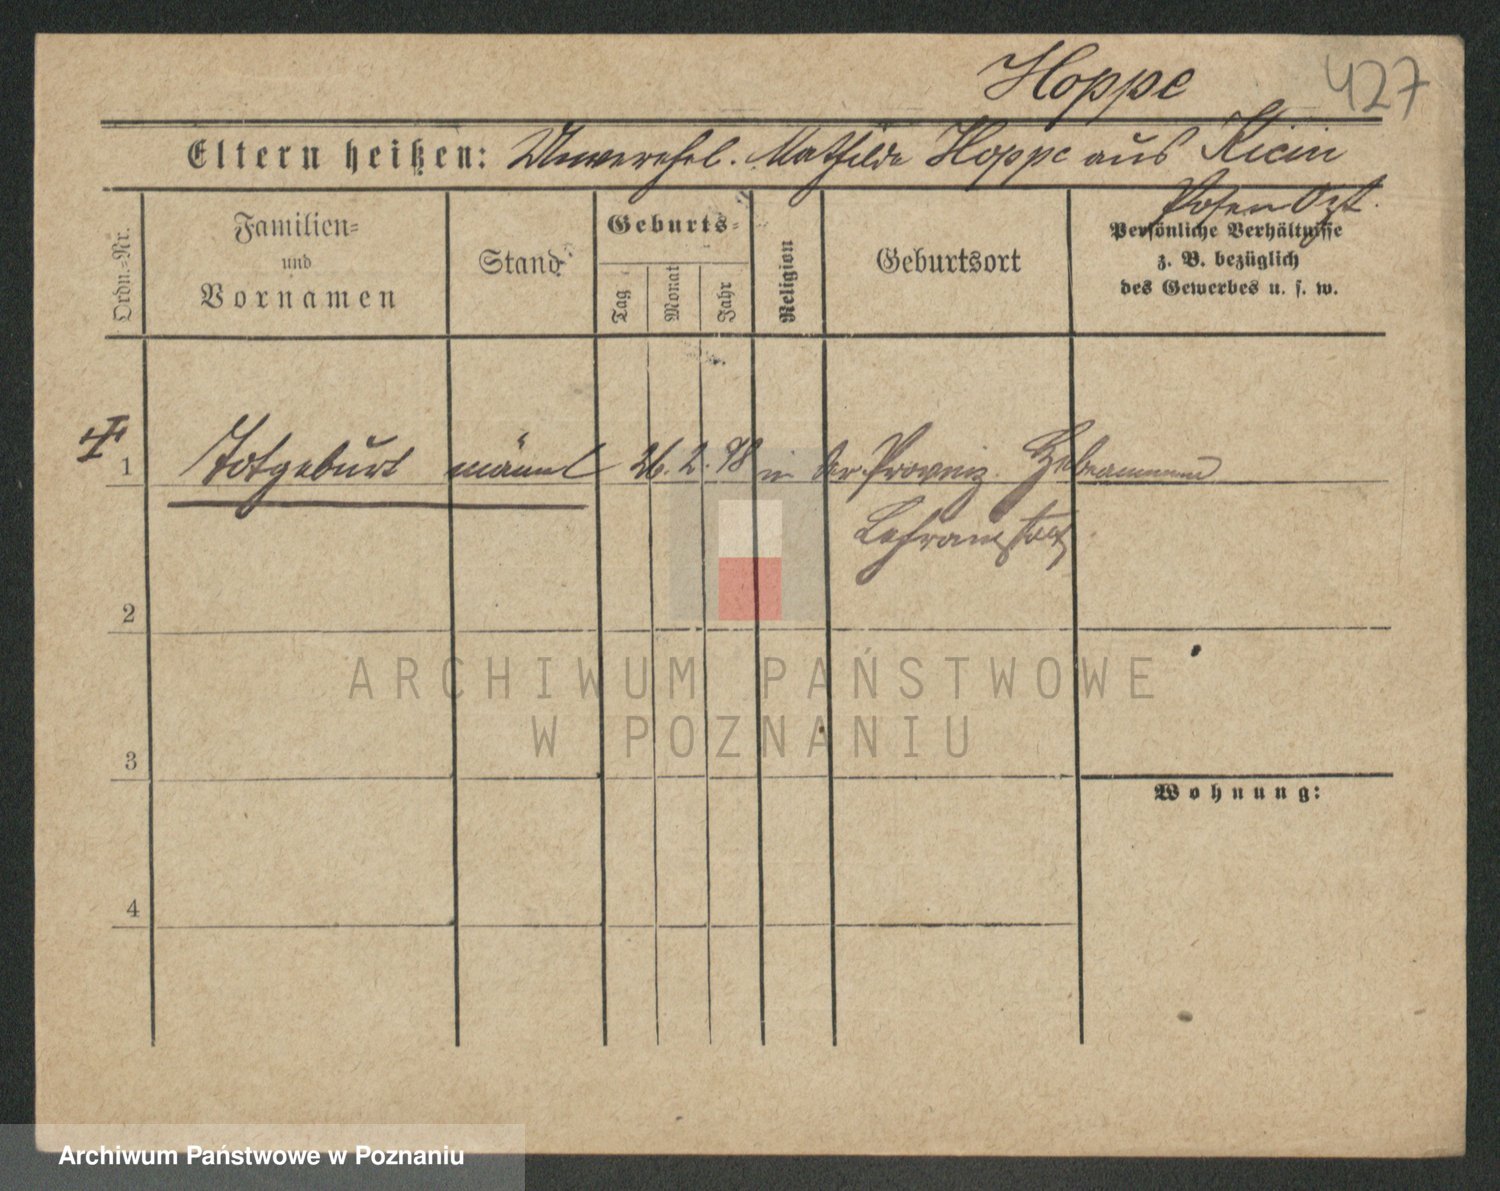 Hoppe 427
Eltern heißen: Unverehel. Mathilde Hoppe aus Kicin
Posen Ost.
Ordn.-Nr.
Familien-
und
Vornamen
Stand
Geburts-
Tag
Monat
Jahr
Religion
Geburtsort
Persönliche Verhältnisse
z. B. bezüglich
des Gewerbes u. s. w.
1 Totgeburt männl 26. 2. 98 in der Provinz. Hebeammen
Lehranstalt
2
3
Wohnung:
4
ARCHIWUM PAŃSTWOWE
W POZNANIU
Archiwum Państwowe w Poznaniu